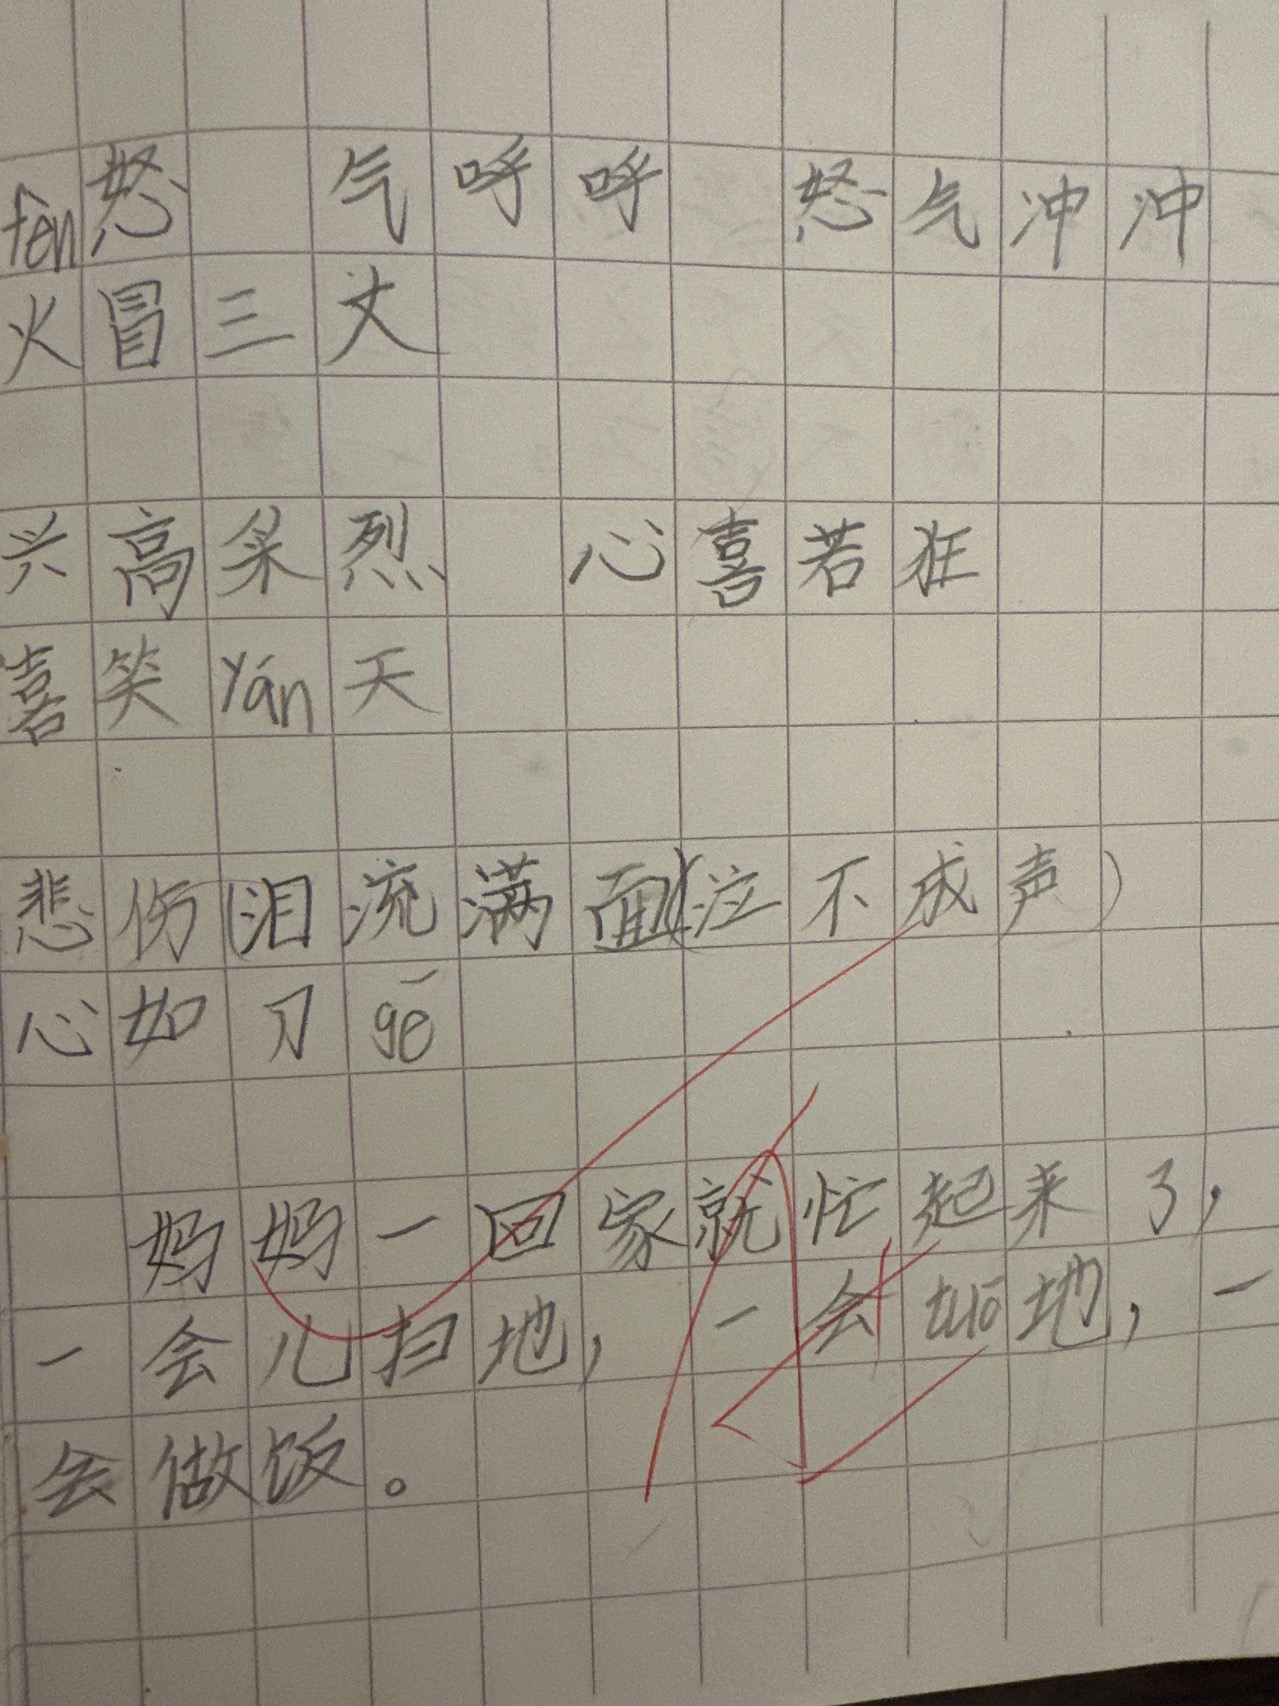 fèn怒 气呼呼 怒气冲冲
火冒三丈
兴高采烈 心喜若狂
喜笑yán天
悲伤(泪流满面)(泣不成声)
心如刀gē
妈妈一回家就忙起来了,
一会儿扫地,一会tuō地,一
会做饭。